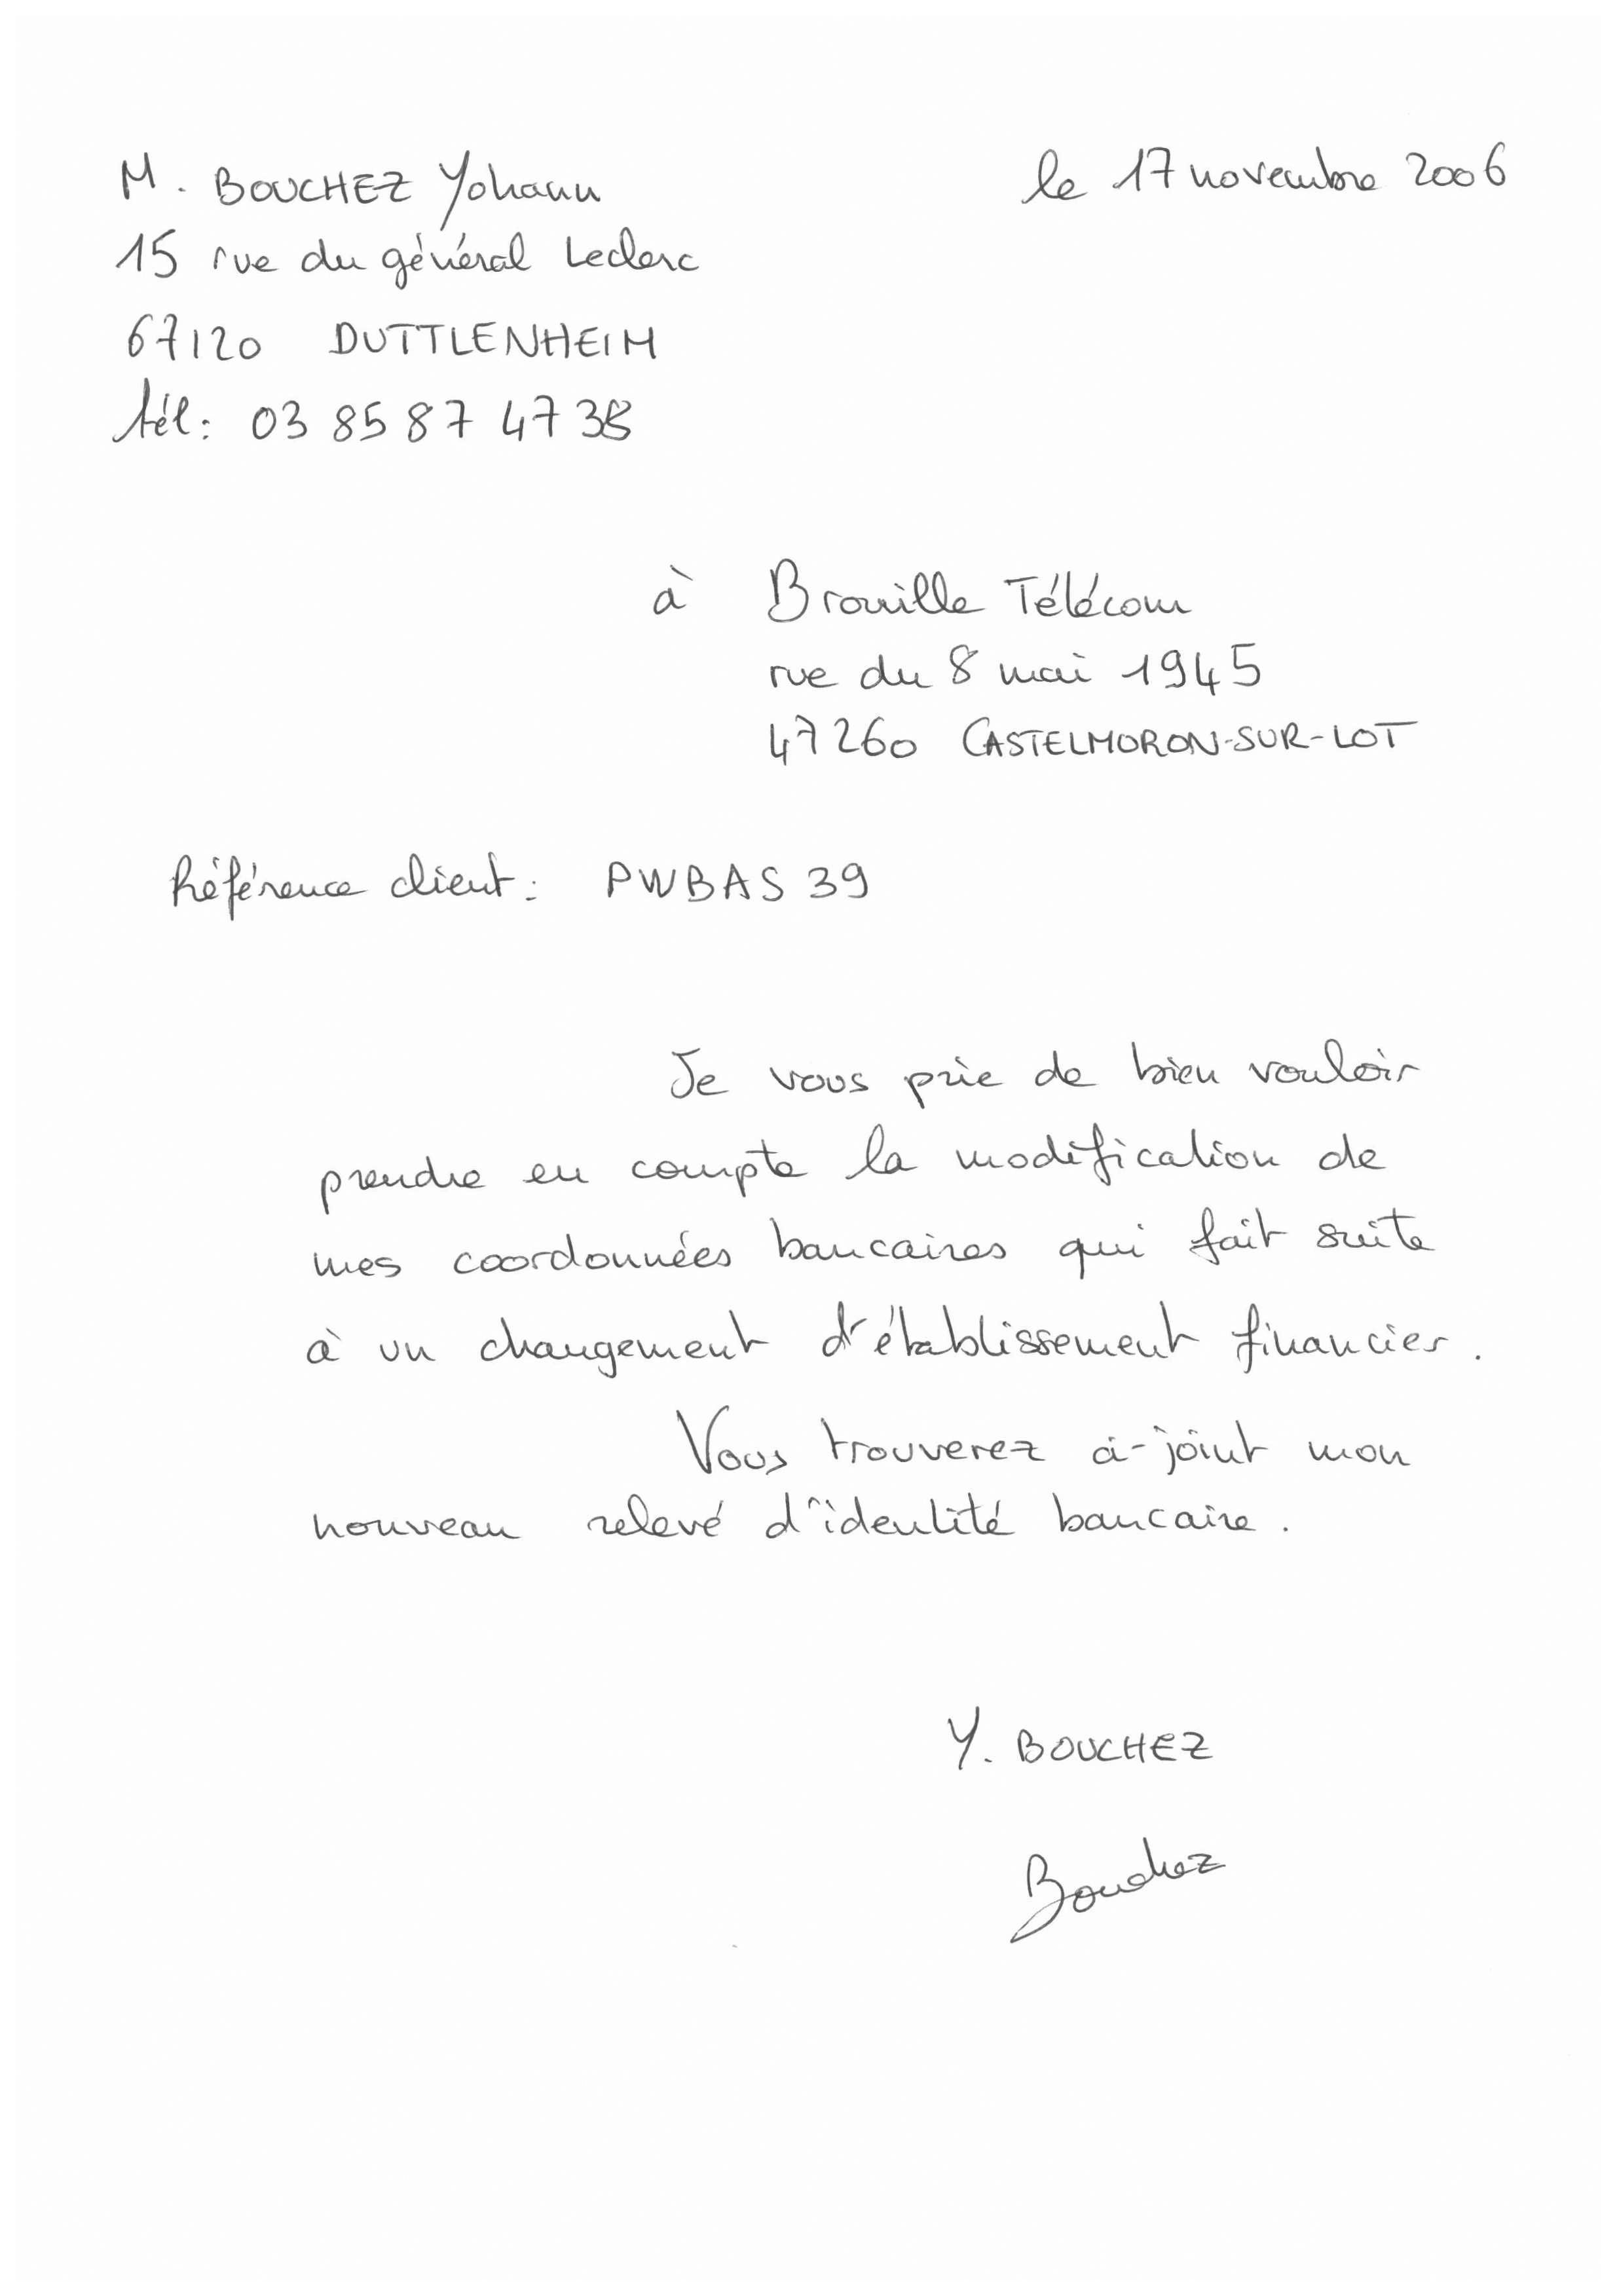 M. BOUCHEZ Yohann
le 17 novembre 2006
15 rue du général Leclerc
67120 DUTTLENHEIM
tél: 03 85 87 47 38
à Brouille Télécom
rue du 8 mai 1945
47260 CASTELMORON-SUR-LOT
Référence client: PWBAS 39
Je vous prie de bien vouloir
prendre en compte la modification de
mes coordonnées bancaires qui fait suite
à un changement d'établissement financier.
Vous trouverez ci-joint mon
nouveau relevé d'identité bancaire.
Y. BOUCHEZ
Bouchez